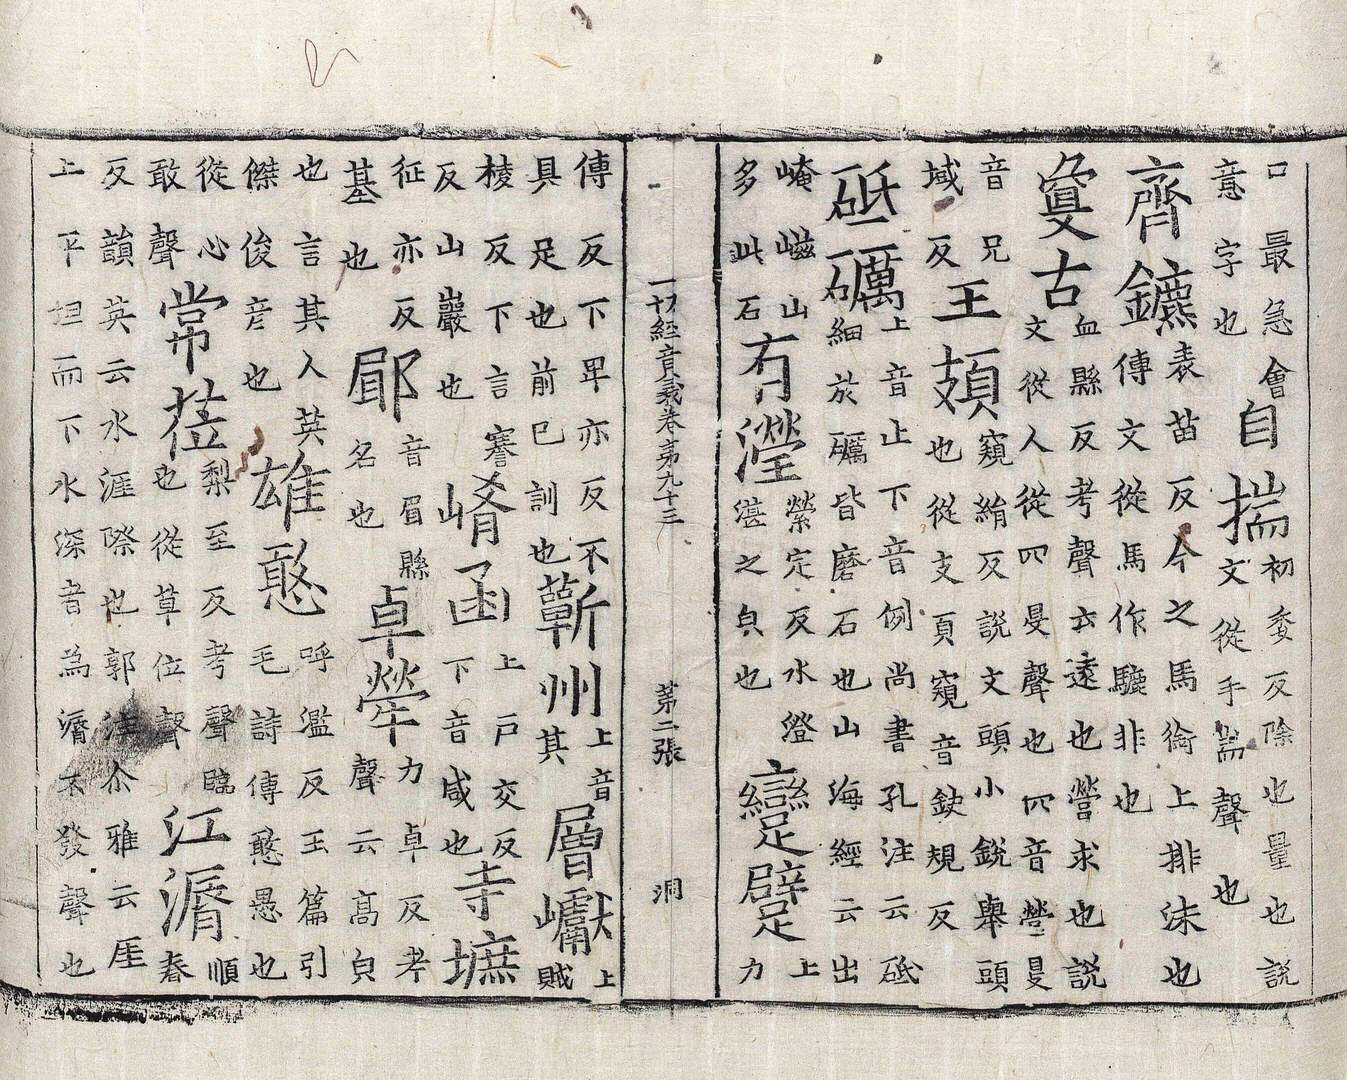 口最急會意字也自揣初委反除也量也説文從手耑聲也
齊鑣表苗反今之馬銜上排沫也傳文從馬作驫非也
敻古血縣反考聲云遠也營求也説文從人從四旻聲也四音瑩旻
音兄域反王頍窺絹反説文頭小鋭舉頭也從支頁窺音鈌規反
砥礪上音止下音例尚書孔注云砥細於礪皆磨石也山海經云出
崦嵫山多此石有瀅縈定反水澄湛之皃也𨇽躄上力
一切經音義卷第九十三 第二張 洞
傳反下畢亦反不具足也前已訓也蘄州上音其層巘上賊
棱反下言謇反山巖也崤函上戶交反下音咸也寺墌
征亦反基也郿音眉縣名也卓犖力卓反考聲云高皃
也言其人英傑俊彦也雄憨呼濫反玉篇引毛詩傳憨愚也
從心敢聲常莅梨至反考聲臨也從草位聲江漘順春
反韻英云水涯際也郭注尒雅云厓上平坦而下水深者為漘不發聲也